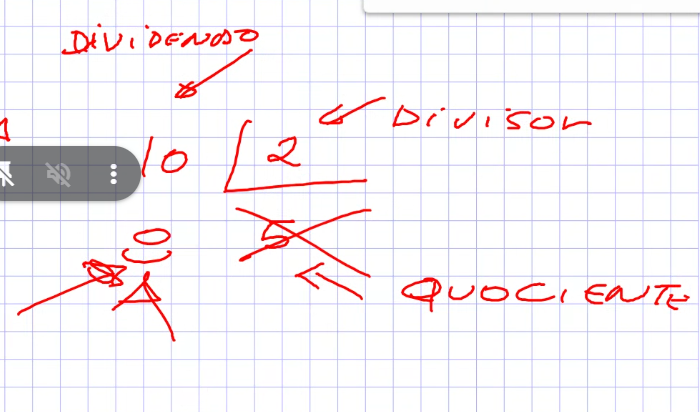 DIVIDENDO
DIVISOR
10 2
0 5
QUOCIENTE